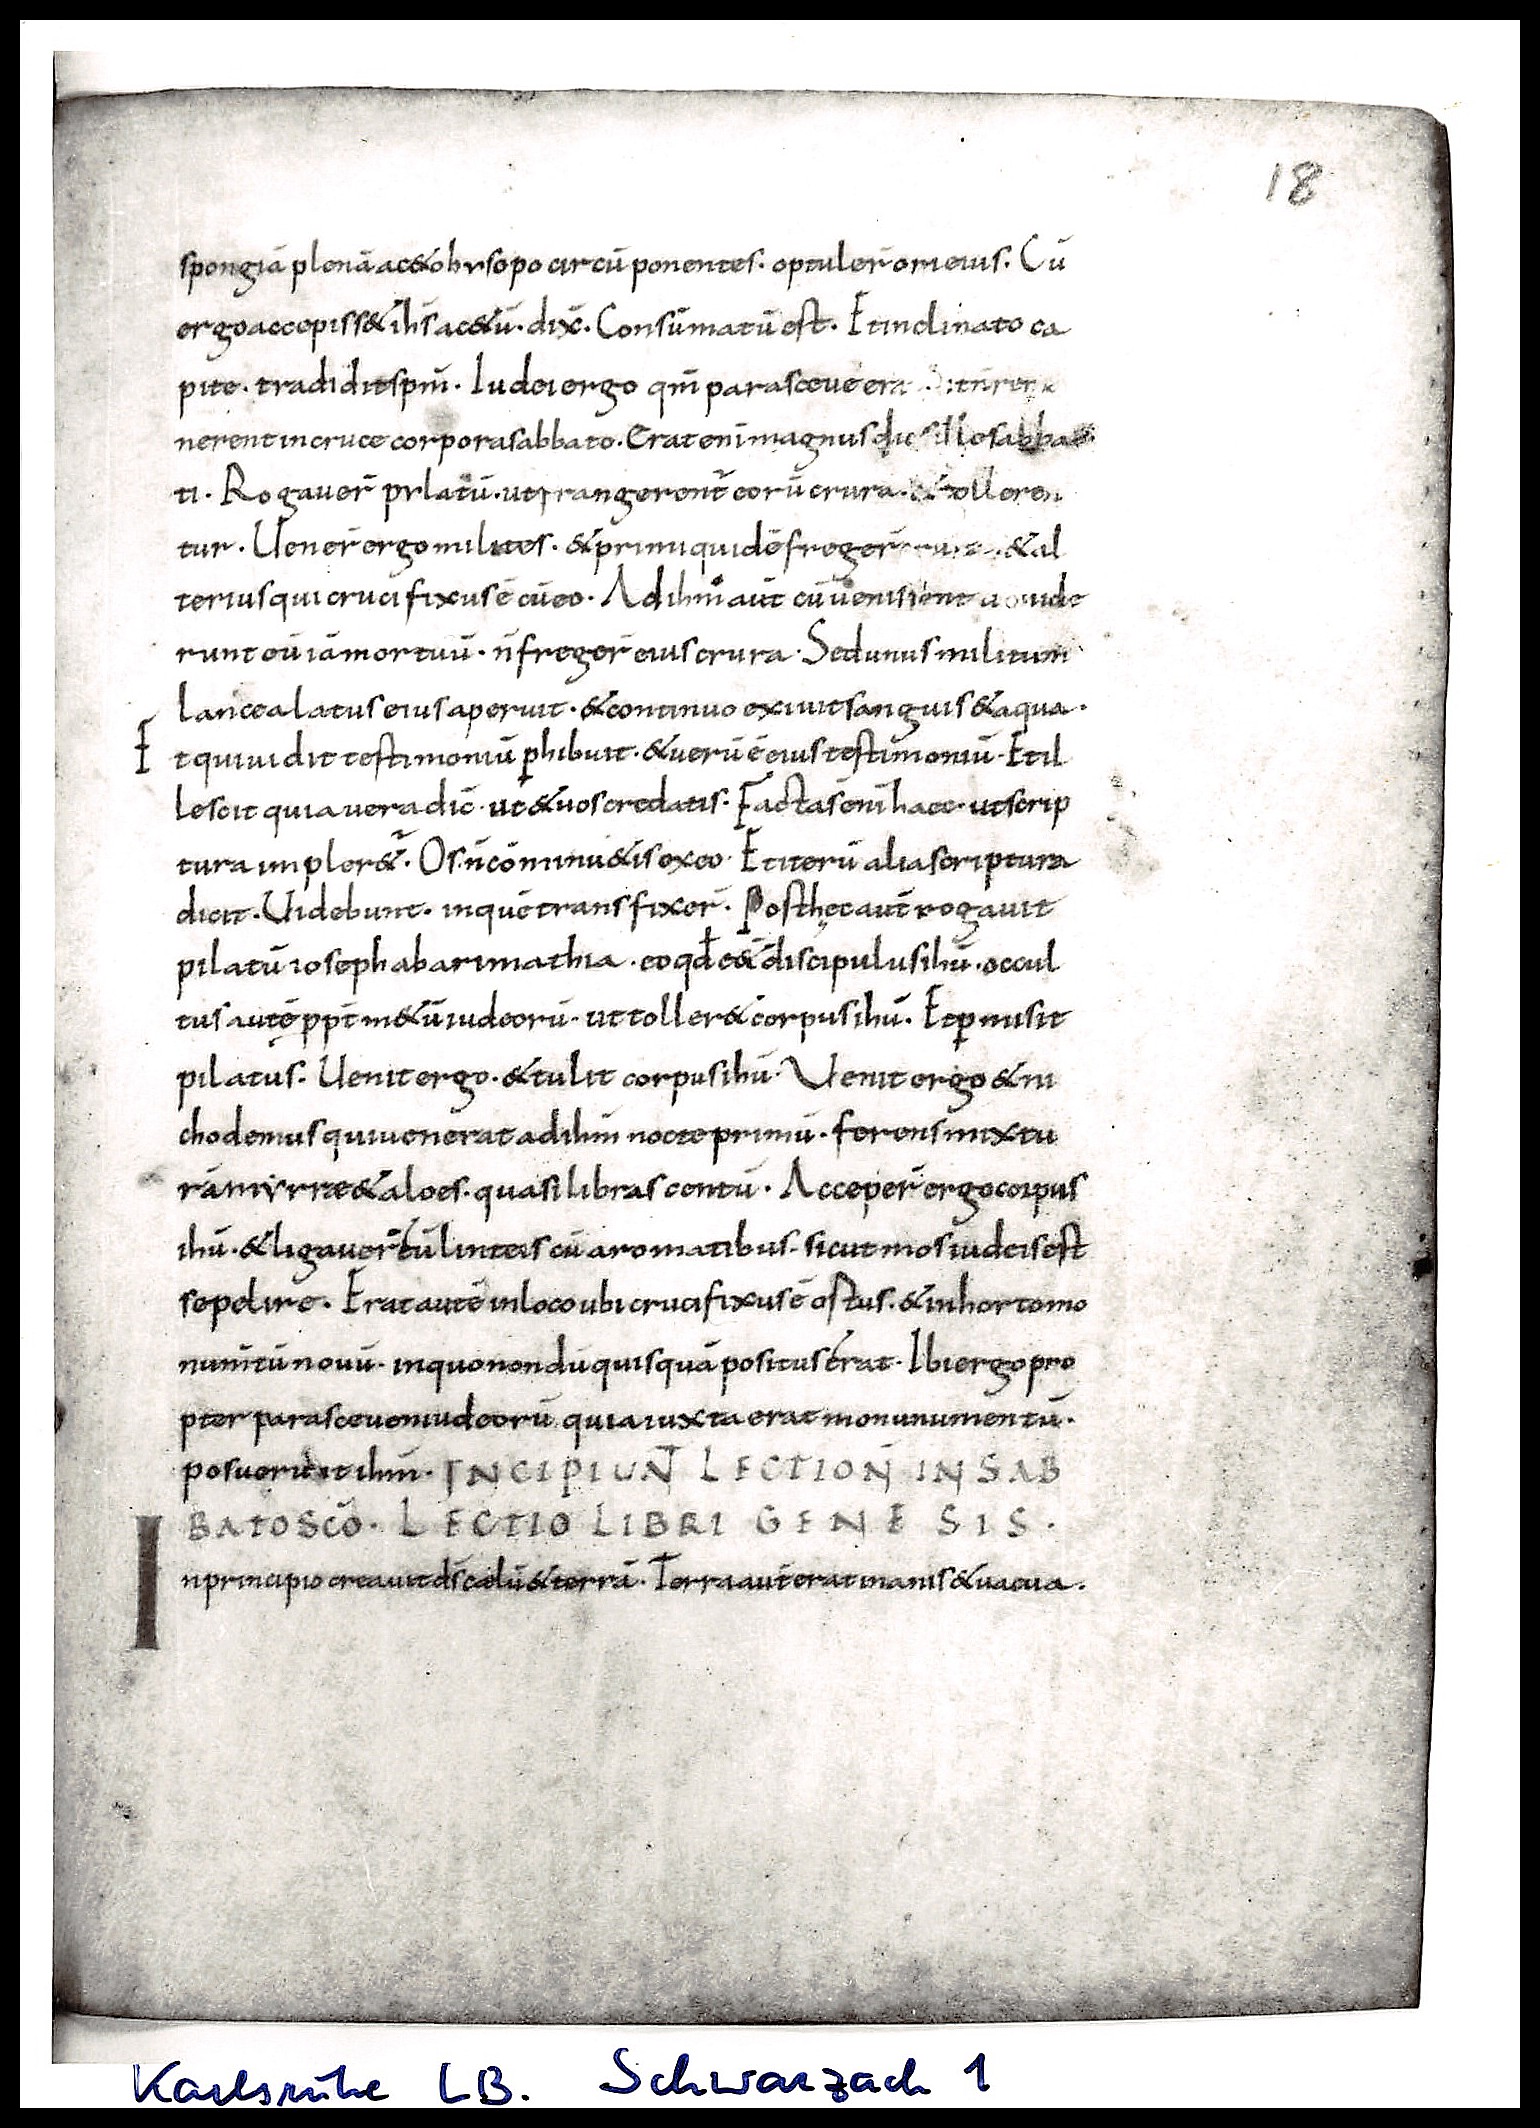 18
spongiā plenā ac&o hysopo circū ponentes. optuler̄ ori eius. Cū
ergo accepiss& ih̄s ac&ū. dix̄. Consūmatū est. Et inclinato ca
pite. tradidit sp̄m. Iudei ergo qm̄ parasceue erat
nerent in cruce corpora sabbato. Erat eni magnus dies illo sabba
ti. Rogauer̄ pylatū. ut frangerent̄ eorū crura. & tolleren
tur. Uener̄ ergo milites. & primi quidē freger̄ & al
terius qui crucifixus ē cū eo. Ad ihm̄ aut̄ cū uenissent uide
runt eū iā mortuū. n̄ freger̄ eius crura. Sed unus militum
lancea latus eius aperuit. & continuo exiuit sanguis & aqua.
Et qui uidit testimoniū phibuit. & uerū ē eius testimoniū. Et il
le scit quia uera dic̄. ut & uos credatis. Facta s̄ eni haec. ut scrip
tura impler&̄. Os n̄ cōminu&is ex eo. Et iterū alia scriptura
dicit. Uidebunt. in quē transfixer̄. Post hęc aut̄ rogauit
pilatū ioseph ab arimathia. eo qd̄ e&̄ discipulus ihū. occul
tus autē ppt̄ m&ū iudeorū. ut toller& corpus ihū. Et pmisit
pilatus. Uenit ergo. & tulit corpus ihū. Uenit ergo & ni
chodemus qui uenerat ad ihm̄ nocte primū. ferens mixtu
rā myrræ & aloes. quasi libras centū. Acceper̄ ergo corpus
ihū. & ligauer̄ eū linteis cū aromatibus. sicut mos iudeis est
sepelire. Erat autē in loco ubi crucifixus ē ostus. & in horto mo
numtū nouū. in quo nondū quisquā positus erat. Ibi ergo pro
pter parasceuen iudeorū quia iuxta erat monunumentū.
posuer̄ ihm̄. INCIPIUNT LECTION̄ IN SAB
BATO SCŌ. LECTIO LIBRI GENESIS.
In principio creauit ds̄ cęlū & terrā. Terra aut̄ erat inanis & uacua.
Karlsruhe LB. Schwarzach 1